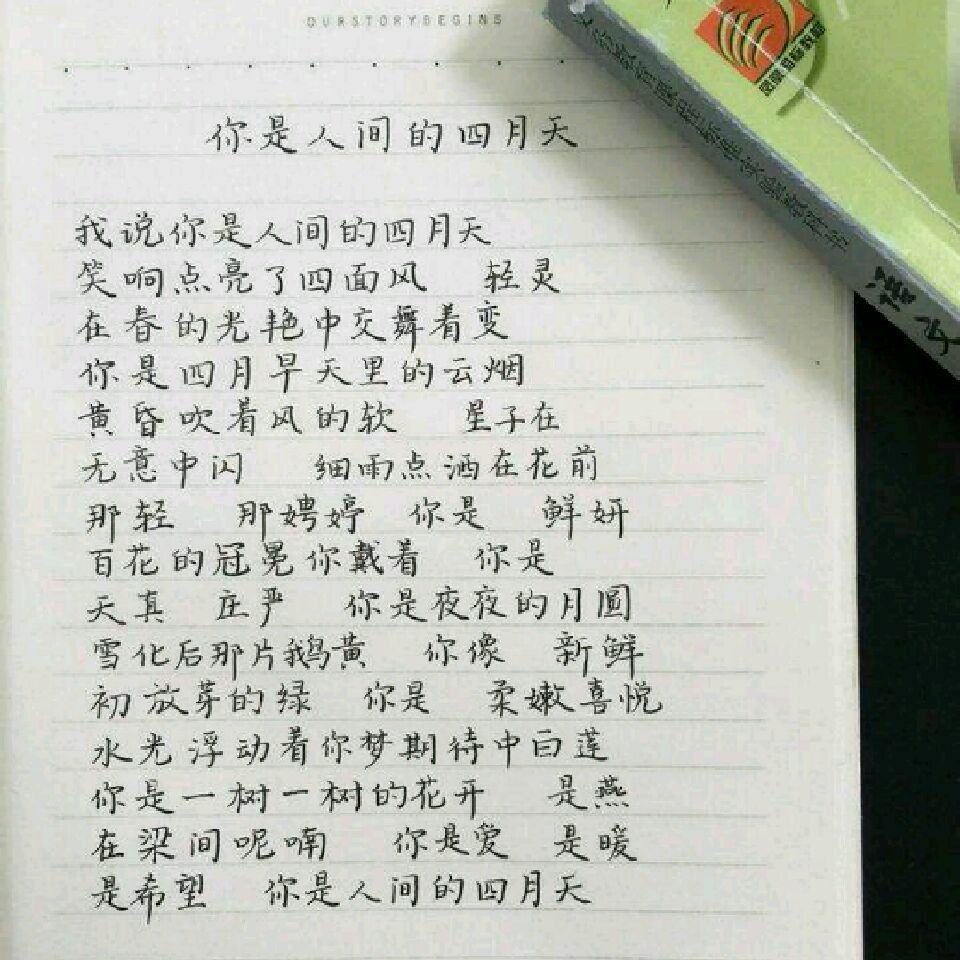 OURSTORYBEGINS
你是人间的四月天
我说你是人间的四月天
笑响点亮了四面风 轻灵
在春的光艳中交舞着变
你是四月早天里的云烟
黄昏吹着风的软 星子在
无意中闪 细雨点洒在花前
那轻 那娉婷 你是 鲜妍
百花的冠冕你戴着 你是
天真 庄严 你是夜夜的月圆
雪化后那片鹅黄 你像 新鲜
初放芽的绿 你是 柔嫩喜悦
水光浮动着你梦期待中白莲
你是一树一树的花开 是燕
在梁间呢喃 你是爱 是暖
是希望 你是人间的四月天
教育课程标准实验教科书